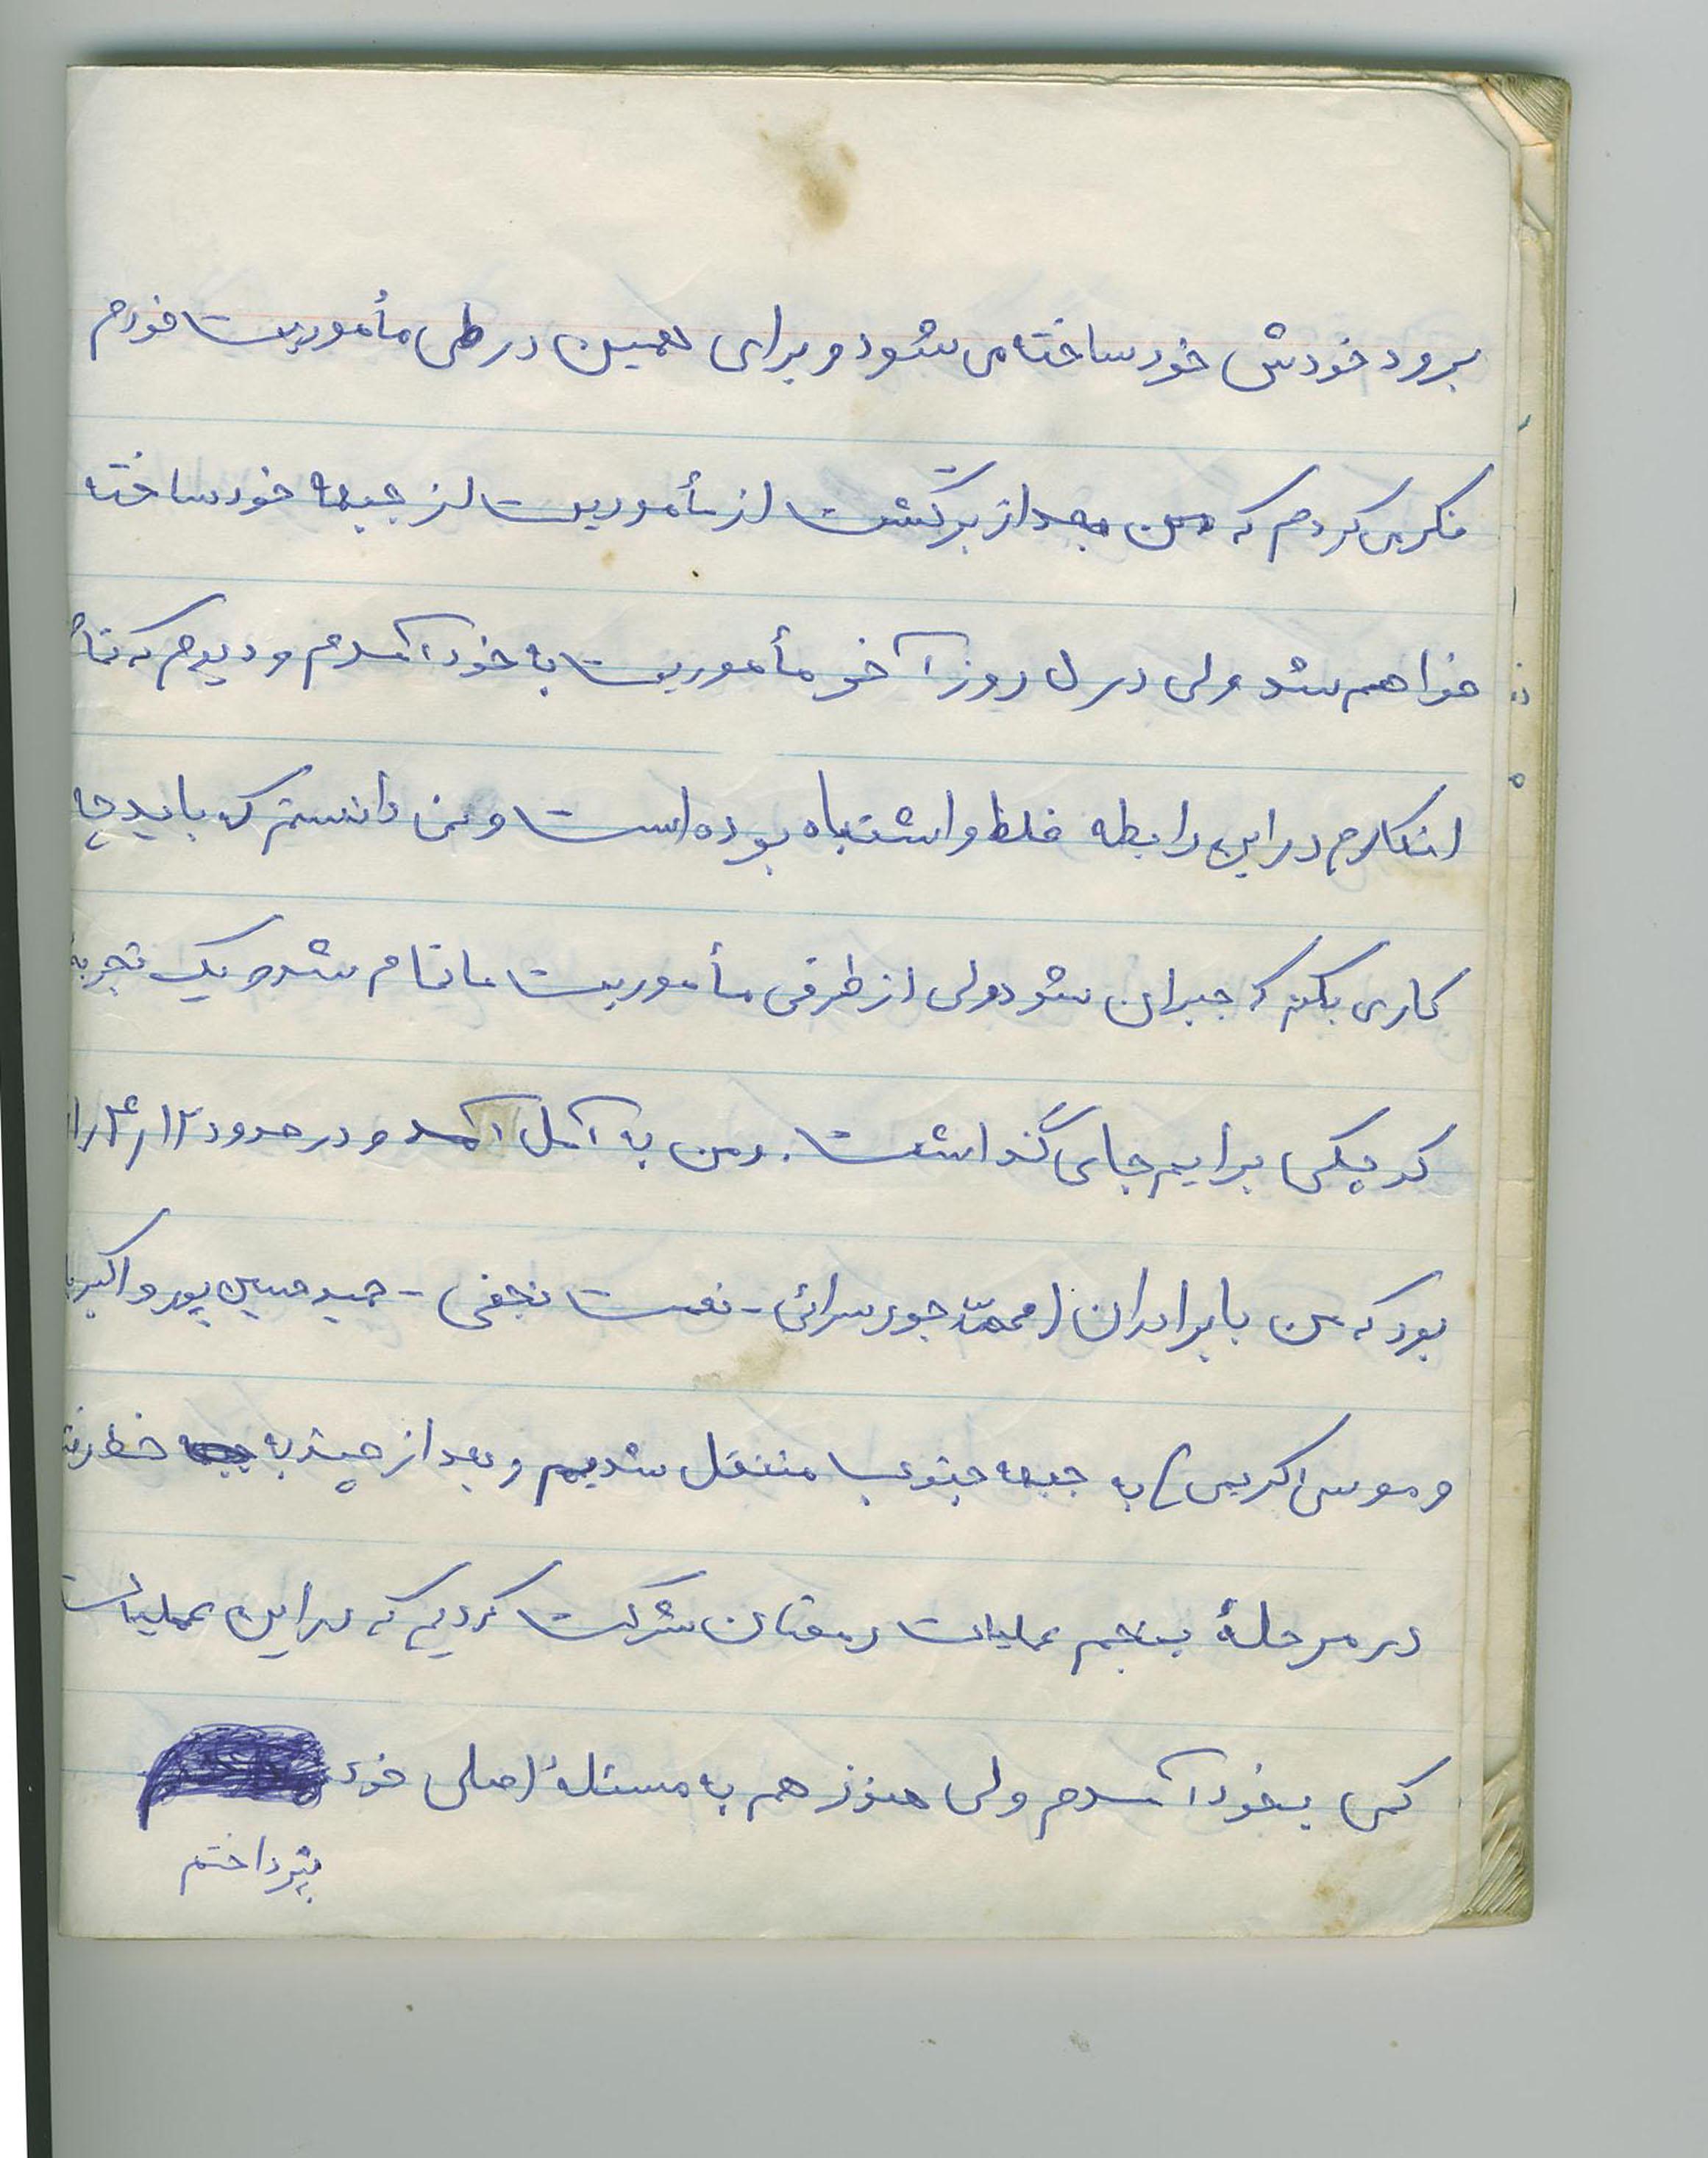 برود خودش خود ساخته می شود و برای همین در طی مأموریت خودم
فکر می کردم که من بعد از برگشت از مأموریت از جبهه خود ساخته
خواهم شد ولی در روز آخر مأموریت به خود آمدم و دیدم که تمام
افکارم در این رابطه غلط و اشتباه بوده است و نمی دانستم که باید چه
کاری بکنم که جبران شود ولی از طرفی مأموریت ما تمام شد و یک تجربه
کوچکی برایم جای گذاشت. و من به آمل آمد و در حدود
بود که من با برادران (محمّد جورسرائی - نعمت نجفی - حمید حسین پور و اکبر
و موسی اکرمی) به جبهه جنوب منتقل شدیم و بعد از چند به خط رفته
در مرحلهٔ پنجم عملیات رمضان شرکت کردیم که در این عملیات
کمی بخود آمدم ولی هنوز هم به مسئلهٔ اصلی خود
نپرداختم